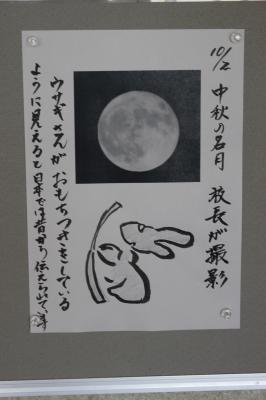 10/2 中秋の名月 校長が撮影
ウサギさんがおもちつきをしている
ように見えると日本では昔から伝えられています